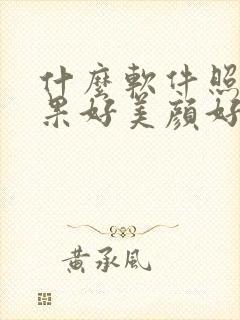 什麼軟件照
果好美顔好
黃承風